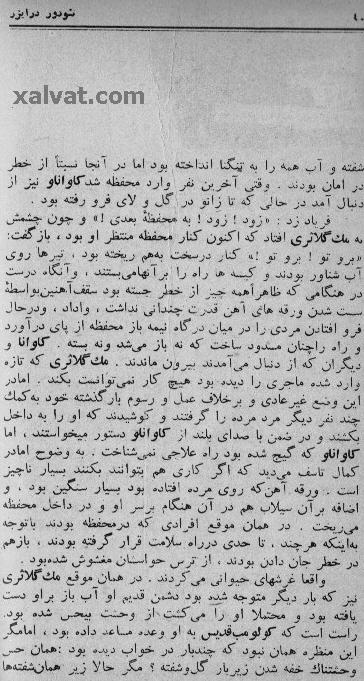 ۱۰
تئودور درایزر
xalvat.com
شفته و آب همه را به تنگنا انداخته بود اما در آنجا نسبتاً از خطر
در امان بودند . وقتی آخرین نفر وارد محفظه شد کاواناو نیز از
دنبال آمد در حالی که تا زانو در گل و لای فرو رفته بود .
فریاد زد : «زود ! زود ! به محفظهٔ بعدی !» و چون چشمش
به مك گلاتری افتاد که اکنون کنار محفظه منتظر او بود ، بازگفت:
«برو تو ! برو تو !» کنار درسخت بهم ریخته بود ، تیرها روی
آب شناور بودند و کیسه ها راه را بر آنها می‌بستند ، و آنگاه درست
در هنگامی که ظاهراً همه چیز از خطر جسته بود سقف آهنین بواسطهٔ
سست شدن ورقه های آهن قدرت چندانی نداشت ، واداد ، ودرحال
فرو افتادن مردی را در میان درگاه نیمه باز محفظه از پای درآورد
و راه راچنان مسدود ساخت که نه باز می‌شد ونه بسته . کاوانا و
دیگران که از دنبال می‌آمدند بیرون ماندند . مك گلاتری که تازه
وارد شده ماجری را دیده بود هیچ کار نمی‌توانست بکند . امادر
این وضع غیرعادی و برخلاف عمل و رسوم بارگذشته خود به‌کمك
چند نفر دیگر مرد مرده را گرفتند و کوشیدند که او را به داخل
بکشند و در ضمن با صدای بلند از کاواناو دستور میخواستند ، اما
کاواناو که گیج شده بود راه علاجی نمی‌شناخت . به وضوح امادر
کمال تاسف می‌دید که اگر کاری هم بتوانند بکنند بسیار ناچیز
است . ورقه آهن‌که روی مرده افتاده بود بسیار سنگین بود ، و
اضافه برآن سیلاب هم در آن هنگام برسر او و در داخل محفظه
می‌ریخت . در همان موقع افرادی که درمحفظه بودند باتوجه
به‌اینکه هرچند ، تا حدی درراه سلامت قرار گرفته بودند ، بازهم
در خطر جان دادن بودند ، از ترس حواسشان مغشوش شده‌بود .
واقعا غرشهای حیوانی می‌کردند . در همان موقع مك گلاتری
نیز که بار دیگر متوجه شده بود دشمن قدیم او آب باز براو دست
یافته بود و محتملا او را می‌کشت از وحشت بیحس شده بود.
راست است که کولومب‌قدیس به او وعده مساعد داده بود ، امامگر
این منظره همان نبود که چندبار در خواب دیده بود : همان حس
وحشتناك خفه شدن زیربار گل‌وشفته ؟ مگر حالا زیر همان‌شفته‌ها